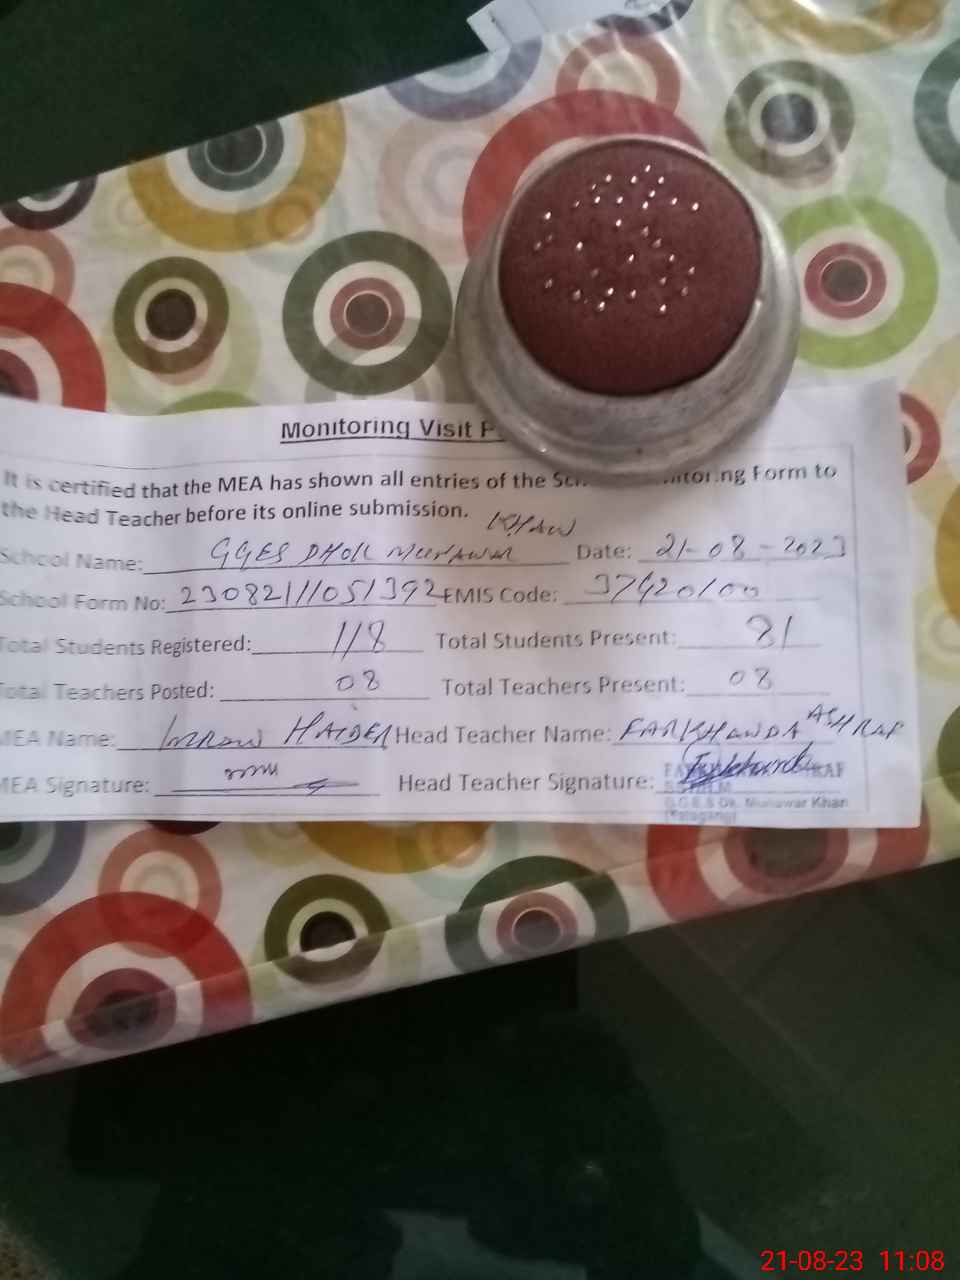 Monitoring Visit P
It is certified that the MEA has shown all entries of the Sch itoring Form to
the Head Teacher before its online submission.
KHAN
School Name: GGES DHOK MUNAWAR Date: 21-08-2023
School Form No: 23082111051392 EMIS Code: 37420100
Total Students Registered: 118 Total Students Present: 81
Total Teachers Posted: 08 Total Teachers Present: 08
MEA Name: IMRAN HAIDER Head Teacher Name: FARKHANDA ASHRAF
MEA Signature: Head Teacher Signature:
G.G.E.S Dk. Munawar Khan
(Talagang)
21-08-23 11:08